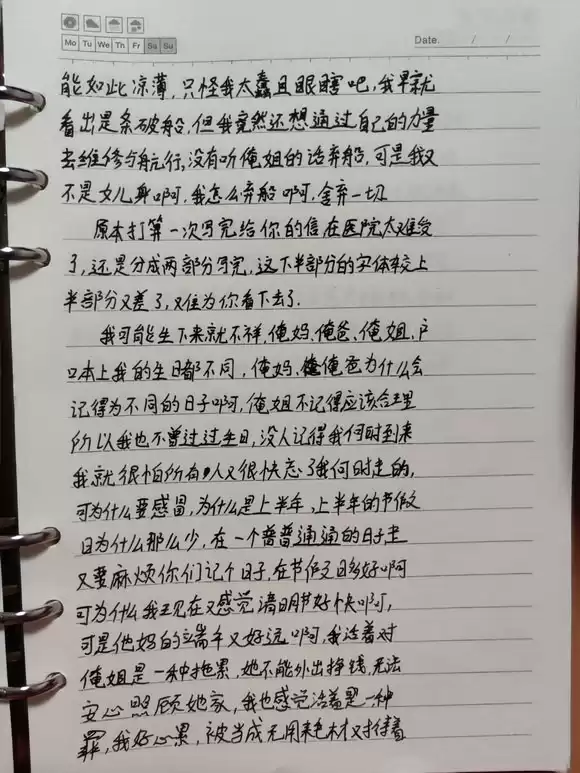 Mo Tu We Th Fr Sa Su
Date. / /
能如此凉薄,只怪我太蠢且眼瞎吧,我早就
看出是条破船,但我竟然还想通过自己的力量
去维修与航行,没有听俺姐的话弃船,可是我又
不是女儿身啊,我怎么弃船啊,舍弃一切
原本打算一次写完给你的信在医院太难受
了,还是分成两部分写完,这下半部分的字体较上
半部分又差了,难为你看下去了.
我可能生下来就不祥,俺妈、俺爸、俺姐、户
口本上我的生日都不同,俺妈、俺爸为什么会
记得为不同的日子啊,俺姐不记得应该合理
所以我也不曾过过生日,没人记得我何时到来
我就很怕所有人又很快忘了我何时走的,
可为什么要感冒,为什么是上半年,上半年的节假
日为什么那么少,在一个普普通通的日子走
又要麻烦你们记个日子,在节假日多好啊
可为什么我现在又感觉清明节好快啊,
可是他妈的端午又好远啊,我活着对
俺姐是一种拖累,她不能外出挣钱,无法
安心照顾她家,我也感觉活着是一种
罪,我好心累,被当成无用耗材又拼着